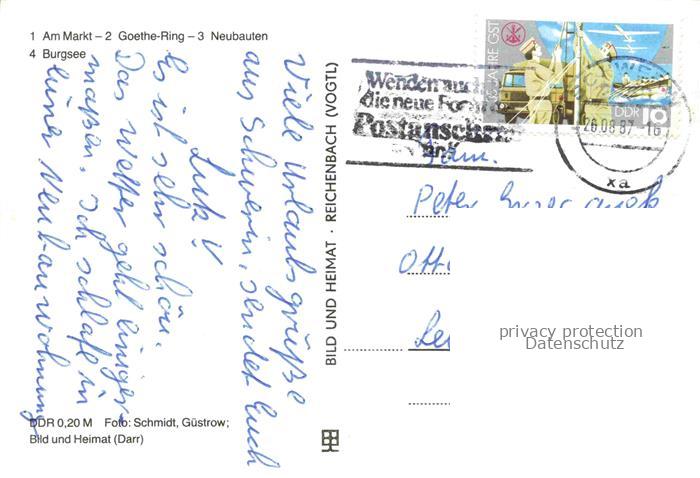 1 Am Markt – 2 Goethe-Ring – 3 Neubauten
4 Burgsee
Viele Urlaubsgrüße
aus Schwerin, sendet Euch
Lutz!
Es ist sehr schön.
Das Wetter geht einiger-
maßen. Ich schlafe in
einer Neubauwohnung
DDR 0,20 M Foto: Schmidt, Güstrow;
Bild und Heimat (Darr)
BILD UND HEIMAT · REICHENBACH (VOGTL)
Wenden auch
die neue Form
Postanschrift
an!
JAHRE GST
DDR 10
26.08.87-16
xa
Fam.
Peter
Otto
privacy protection
Datenschutz